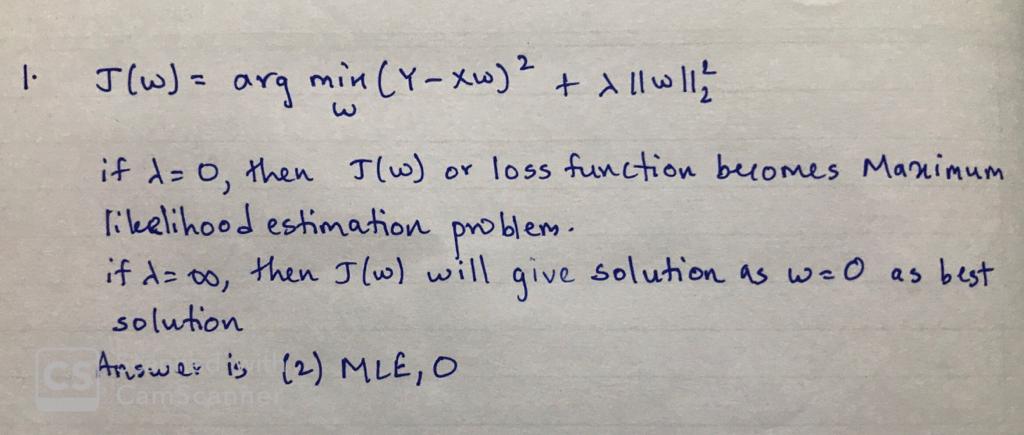 1. J(w) = arg min (Y - Xw)² + λ ||w||₂²
w
if λ = 0, then J(w) or loss function becomes Maximum
likelihood estimation problem.
if λ = ∞, then J(w) will give solution as w = 0 as best
solution
Answer is (2) MLE, 0
CS Scanned with
CamScanner